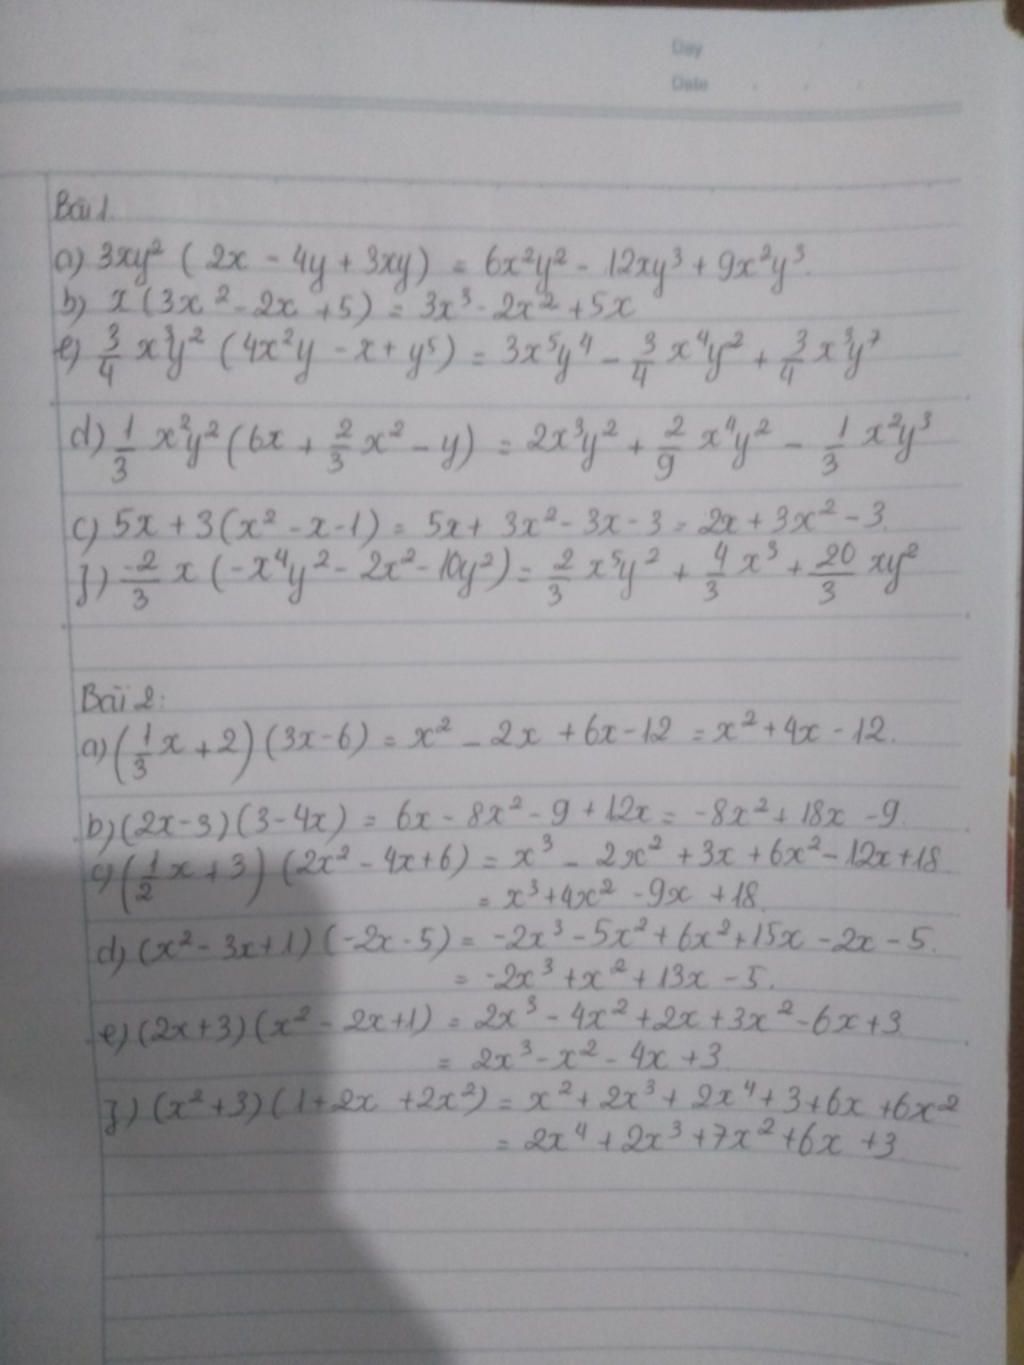 Day
Date
Bài 1.
a) 3xy² ( 2x - 4y + 3xy) = 6x²y² - 12xy³ + 9x²y³.
b) x (3x² - 2x + 5) = 3x³ - 2x² + 5x
e) 3/4 x³y² (4x²y - x + y⁵) = 3x⁵y⁴ - 3/4 x⁴y² + 3/4 x³y⁷
d) 1/3 x²y² (6x + 2/3 x² - y) = 2x³y² + 2/9 x⁴y² - 1/3 x²y³
c) 5x + 3(x² - x - 1) = 5x + 3x² - 3x - 3 = 2x + 3x² - 3.
f) -2/3 x (-x⁴y² - 2x² - 10y²) = 2/3 x⁵y² + 4/3 x³ + 20/3 xy²
Bài 2:
a) (1/3 x + 2) (3x - 6) = x² - 2x + 6x - 12 = x² + 4x - 12.
b) (2x - 3) (3 - 4x) = 6x - 8x² - 9 + 12x = -8x² + 18x - 9.
c) (1/2 x + 3) (2x² - 4x + 6) = x³ - 2x² + 3x + 6x² - 12x + 18.
= x³ + 4x² - 9x + 18.
d) (x² - 3x + 1) (-2x - 5) = -2x³ - 5x² + 6x² + 15x - 2x - 5.
= -2x³ + x² + 13x - 5.
e) (2x + 3) (x² - 2x + 1) = 2x³ - 4x² + 2x + 3x² - 6x + 3
= 2x³ - x² - 4x + 3
f) (x² + 3) (1 + 2x + 2x²) = x² + 2x³ + 2x⁴ + 3 + 6x + 6x²
= 2x⁴ + 2x³ + 7x² + 6x + 3